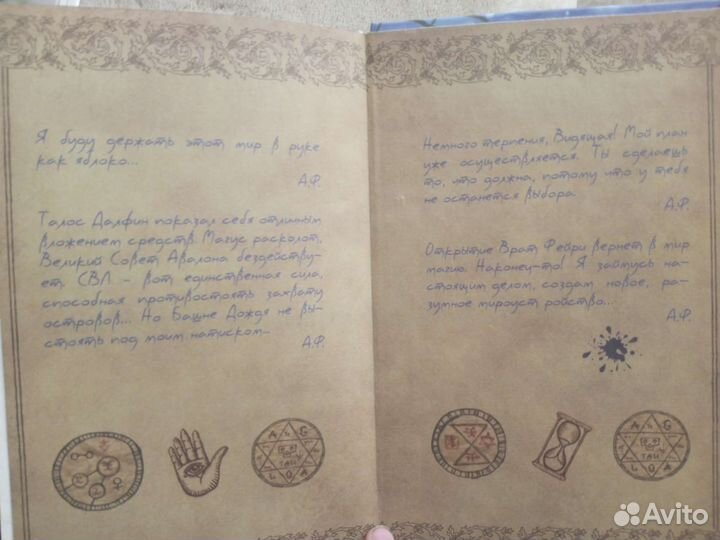 Я буду держать этот мир в руке
как яблоко...
А.Ф.
Талос Далфин показал себя отличным
вложением средств. Магус расколот,
Великий Совет Авалона бездейству-
ет. СВЛ - вот единственная сила,
способная противостоять захвату
островов... Но Башне Дождя не вы-
стоять под моим натиском...
А.Ф.
Немного терпения, Видящая! Мой план
уже осуществляется. Ты сделаешь
то, что должна, потому что у тебя
не останется выбора.
А.Ф.
Открытие Врат Фейри вернет в мир
магию. Наконец-то! Я займусь на-
стоящим делом, создам новое, ра-
зумное мироустройство...
А.Ф.
A G
TAU
L A
A G
TAU
L A
Avito